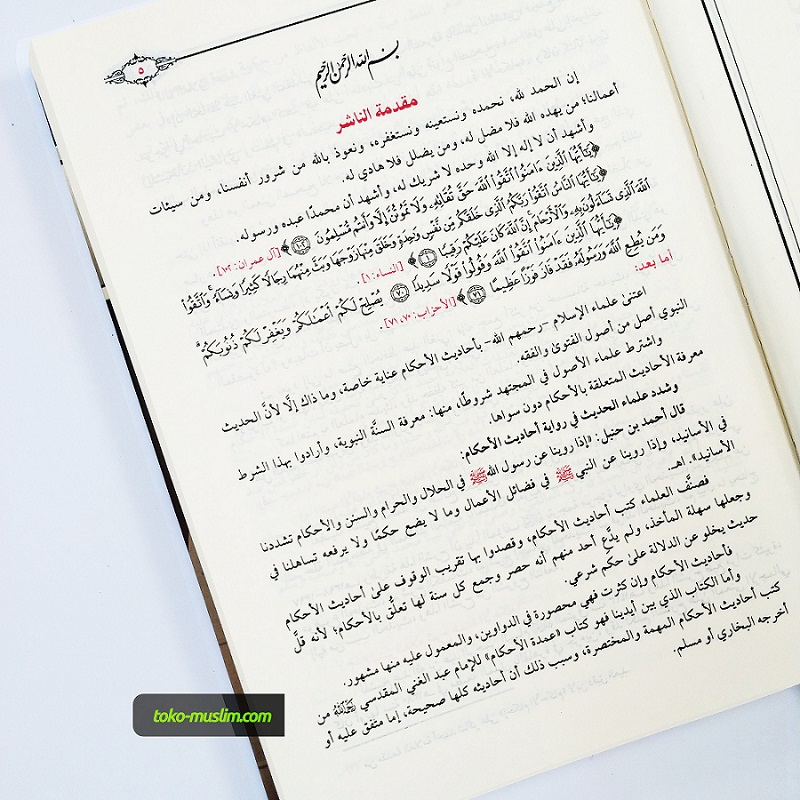 ٥
بسم الله الرحمن الرحيم
مقدمة الناشر
إن الحمد لله، نحمده ونستعينه ونستغفره، ونعوذ بالله من شرور أنفسنا، ومن سيئات
أعمالنا؛ من يهده الله فلا مضل له، ومن يضلل فلا هادي له.
وأشهد أن لا إله إلا الله وحده لا شريك له، وأشهد أن محمدًا عبده ورسوله.
﴿يَٰٓأَيُّهَا ٱلَّذِينَ ءَامَنُوا۟ ٱتَّقُوا۟ ٱللَّهَ حَقَّ تُقَاتِهِۦ وَلَا تَمُوتُنَّ إِلَّا وَأَنتُم مُّسْلِمُونَ ١٠٢﴾ [آل عمران: ١٠٢].
﴿يَٰٓأَيُّهَا ٱلنَّاسُ ٱتَّقُوا۟ رَبَّكُمُ ٱلَّذِى خَلَقَكُم مِّن نَّفْسٍ وَٰحِدَةٍ وَخَلَقَ مِنْهَا زَوْجَهَا وَبَثَّ مِنْهُمَا رِجَالًا كَثِيرًا وَنِسَآءً ۚ وَٱتَّقُوا۟
ٱللَّهَ ٱلَّذِى تَسَآءَلُونَ بِهِۦ وَٱلْأَرْحَامَ ۚ إِنَّ ٱللَّهَ كَانَ عَلَيْكُمْ رَقِيبًا ١﴾ [النساء: ١].
﴿يَٰٓأَيُّهَا ٱلَّذِينَ ءَامَنُوا۟ ٱتَّقُوا۟ ٱللَّهَ وَقُولُوا۟ قَوْلًا سَدِيدًا ٧٠ يُصْلِحْ لَكُمْ أَعْمَٰلَكُمْ وَيَغْفِرْ لَكُمْ ذُنُوبَكُمْ ۗ
وَمَن يُطِعِ ٱللَّهَ وَرَسُولَهُۥ فَقَدْ فَازَ فَوْزًا عَظِيمًا ٧١﴾ [الأحزاب: ٧٠، ٧١].
أما بعد:
اعتنى علماء الإسلام -رحمهم الله- بأحاديث الأحكام عناية خاصة، وما ذاك إلَّا لأنَّ الحديث
النبوي أصل من أصول الفتوى والفقه.
واشترط علماء الأصول في المجتهد شروطًا، منها: معرفة السنَّة النبوية، وأرادوا بهذا الشرط
معرفة الأحاديث المتعلقة بالأحكام دون سواها.
وشدد علماء الحديث في رواية أحاديث الأحكام:
قال أحمد بن حنبل: «إذا روينا عن رسول الله ﷺ في الحلال والحرام والسنن والأحكام تشددنا
في الأسانيد، وإذا روينا عن النبي ﷺ في فضائل الأعمال وما لا يضع حكمًا ولا يرفعه تساهلنا في
الأسانيد». اهـ.
فصنَّف العلماء كتب أحاديث الأحكام، وقصدوا بها تقريب الوقوف على أحاديث الأحكام
وجعلها سهلة المأخذ، ولم يدَّعِ أحد منهم أنه حصر وجمع كل سنة لها تعلُّق بالأحكام؛ لأنه قلَّ
حديث يخلو عن الدلالة على حكم شرعي.
فأحاديث الأحكام وإن كثرت فهي محصورة في الدواوين، والمعمول عليه منها مشهور.
وأما الكتاب الذي بين أيدينا فهو كتاب «عمدة الأحكام» للإمام عبد الغني المقدسي رحمه الله من
كتب أحاديث الأحكام المهمة والمختصرة، وسبب ذلك أن أحاديثه كلها صحيحة، إما متفق عليه أو
أخرجه البخاري أو مسلم.
toko-muslim.com